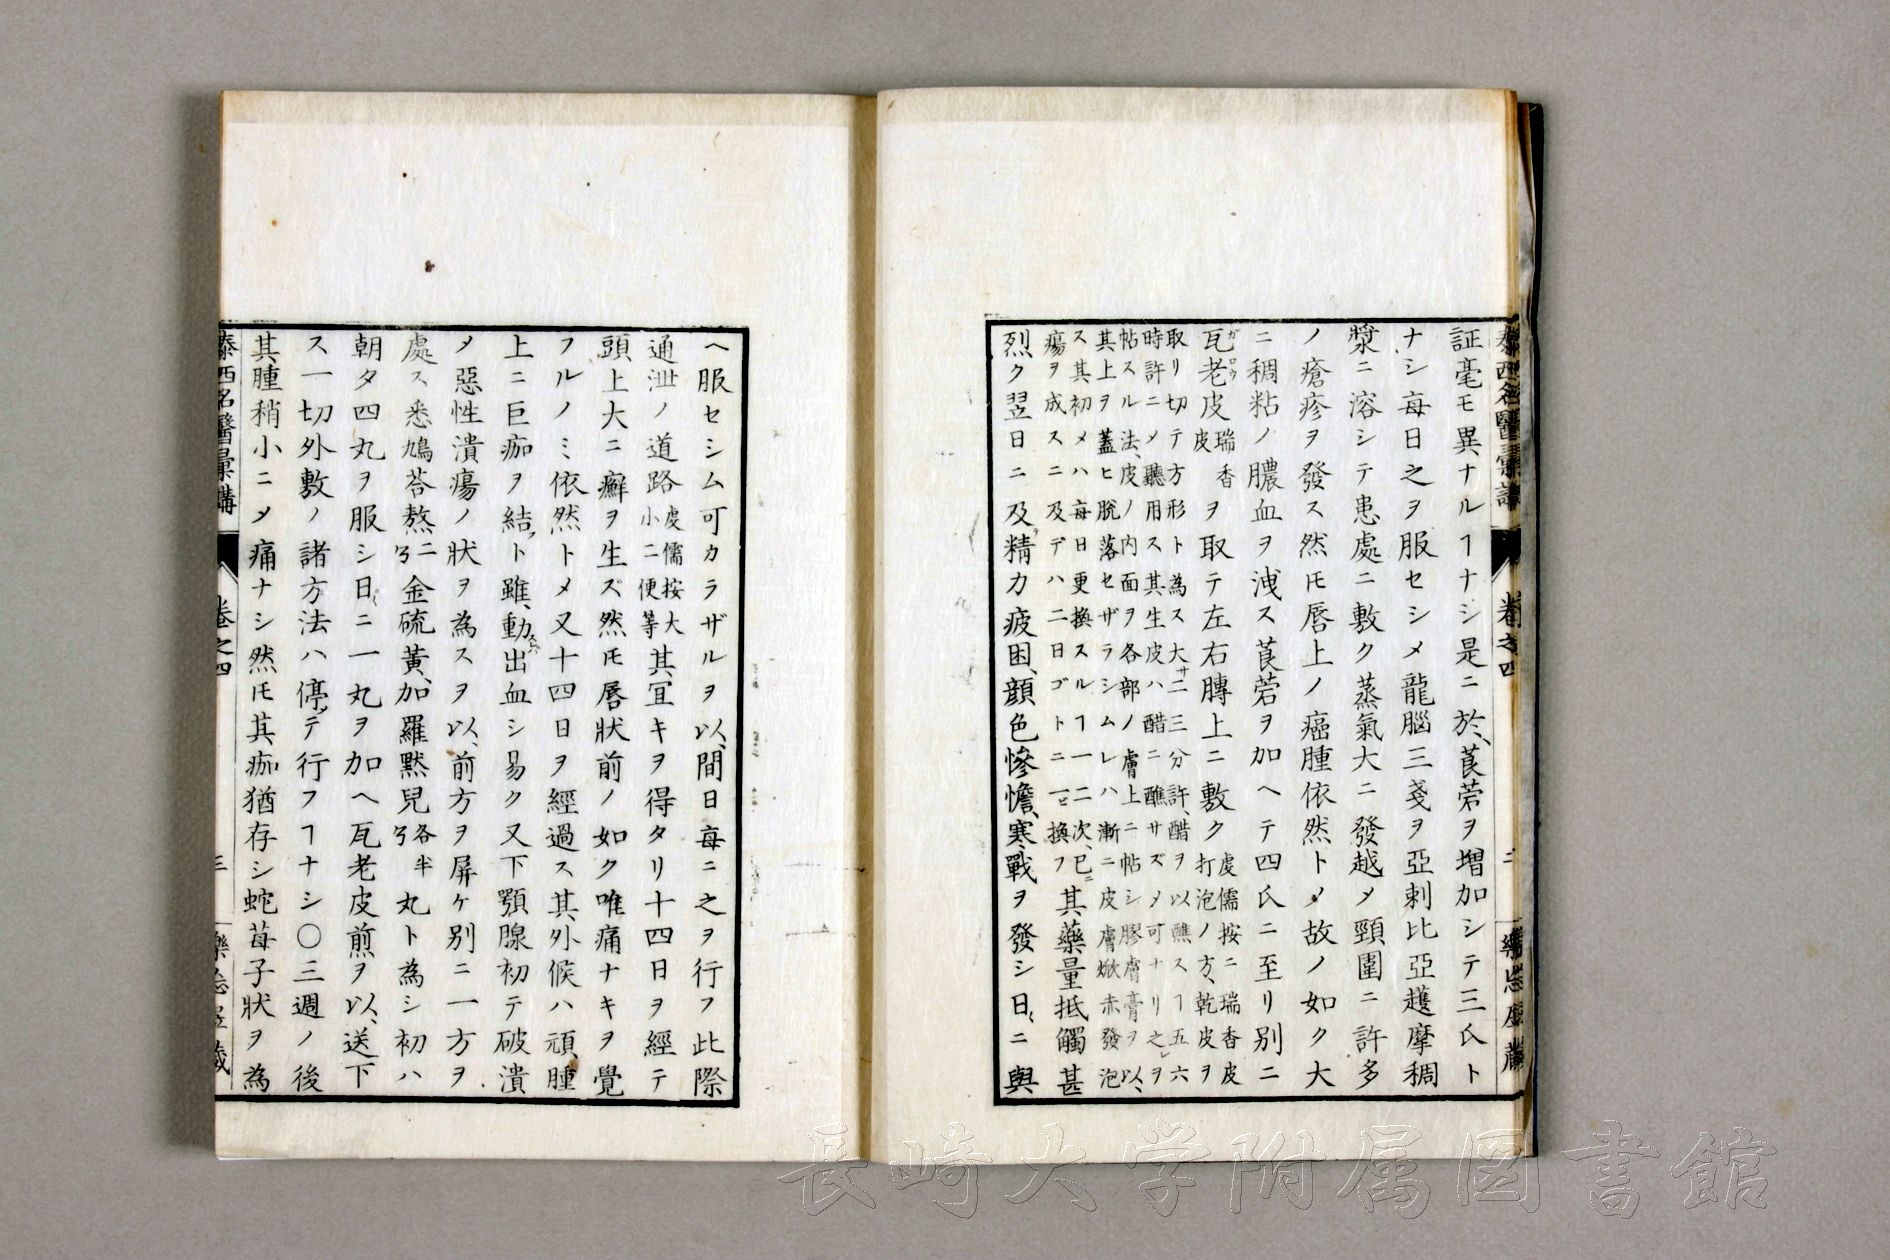 泰西名醫彙講
卷之四
二
証毫モ異ナルヿナシ是ニ於、莨菪ヲ増加シテ三氏ト
ナシ毎日之ヲ服セシメ龍腦三戔ヲ亞刺比亞護摩稠
漿ニ溶シテ患處ニ敷ク蒸氣大ニ發越メ頸圍ニ許多
ノ瘡疹ヲ發ス然𪜈唇上ノ癌腫依然トメ故ノ如ク大
ニ稠粘ノ膿血ヲ洩ス莨菪ヲ加ヘテ四氏ニ至リ別ニ
瓦老皮瑞香皮ヲ取テ左右膊上ニ敷ク虔儒按ニ瑞香皮打泡ノ方、乾皮ヲ
取リ切テ方形ト為ス大サ二三分許、醋ヲ以醮スヿ五六
時許ニメ聽用ス其生皮ハ醋ニ醮サズメ可ナリ之ヲ
帖スル法、皮ノ内面ヲ各部ノ膚上ニ帖シ膠膏ヲ以、
其上ヲ蓋ヒ脱落セザラシムレハ漸ニ皮膚焮赤發泡
ス其初メハ毎日更換スルヿ一二次、已ニ
瘍ヲ成スニ及デハ二日ゴトニ一ヒ換フ其藥量抵觸甚
烈ク翌日ニ及精力疲困、顔色慘憺、寒戰ヲ發シ日ニ與
ヘ服セシム可カラザルヲ以、間日毎ニ之ヲ行フ此際
通泄ノ道路虔儒按大小二便等其冝キヲ得タリ十四日ヲ經テ
頭上大ニ癬ヲ生ズ然𪜈唇状前ノ如ク唯痛ナキヲ覺
フルノミ依然トメ又十四日ヲ經過ス其外候ハ頑腫
上ニ巨痂ヲ結ト雖、動出血シ易ク又下顎腺初テ破潰
メ惡性潰瘍ノ状ヲ為スヲ以、前方ヲ屏ケ別ニ一方ヲ
處ス悉鳩荅熬二弓金硫黄、加羅黙兒各半弓丸ト為シ初ハ
朝夕四丸ヲ服シ日ニ一丸ヲ加ヘ瓦老皮煎ヲ以、送下
ス一切外敷ノ諸方法ハ停テ行フヿナシ〇三週ノ後
其腫稍小ニメ痛ナシ然𪜈其痂猶存シ蛇苺子状ヲ為
泰西名醫彙講
卷之四
三
長崎大学附属図書館